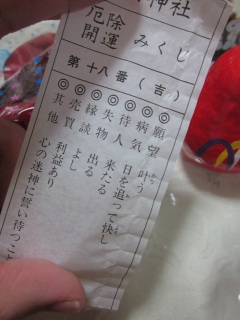 神社
厄除
開運 みくじ
第十八番(吉)
◎願望 叶う
◎病気 日を追って快し
◎待人 来たる
◎失物 出る
◎縁談 よし
◎売買 利益あり
◎其他 心の迷神に誓い待つこと